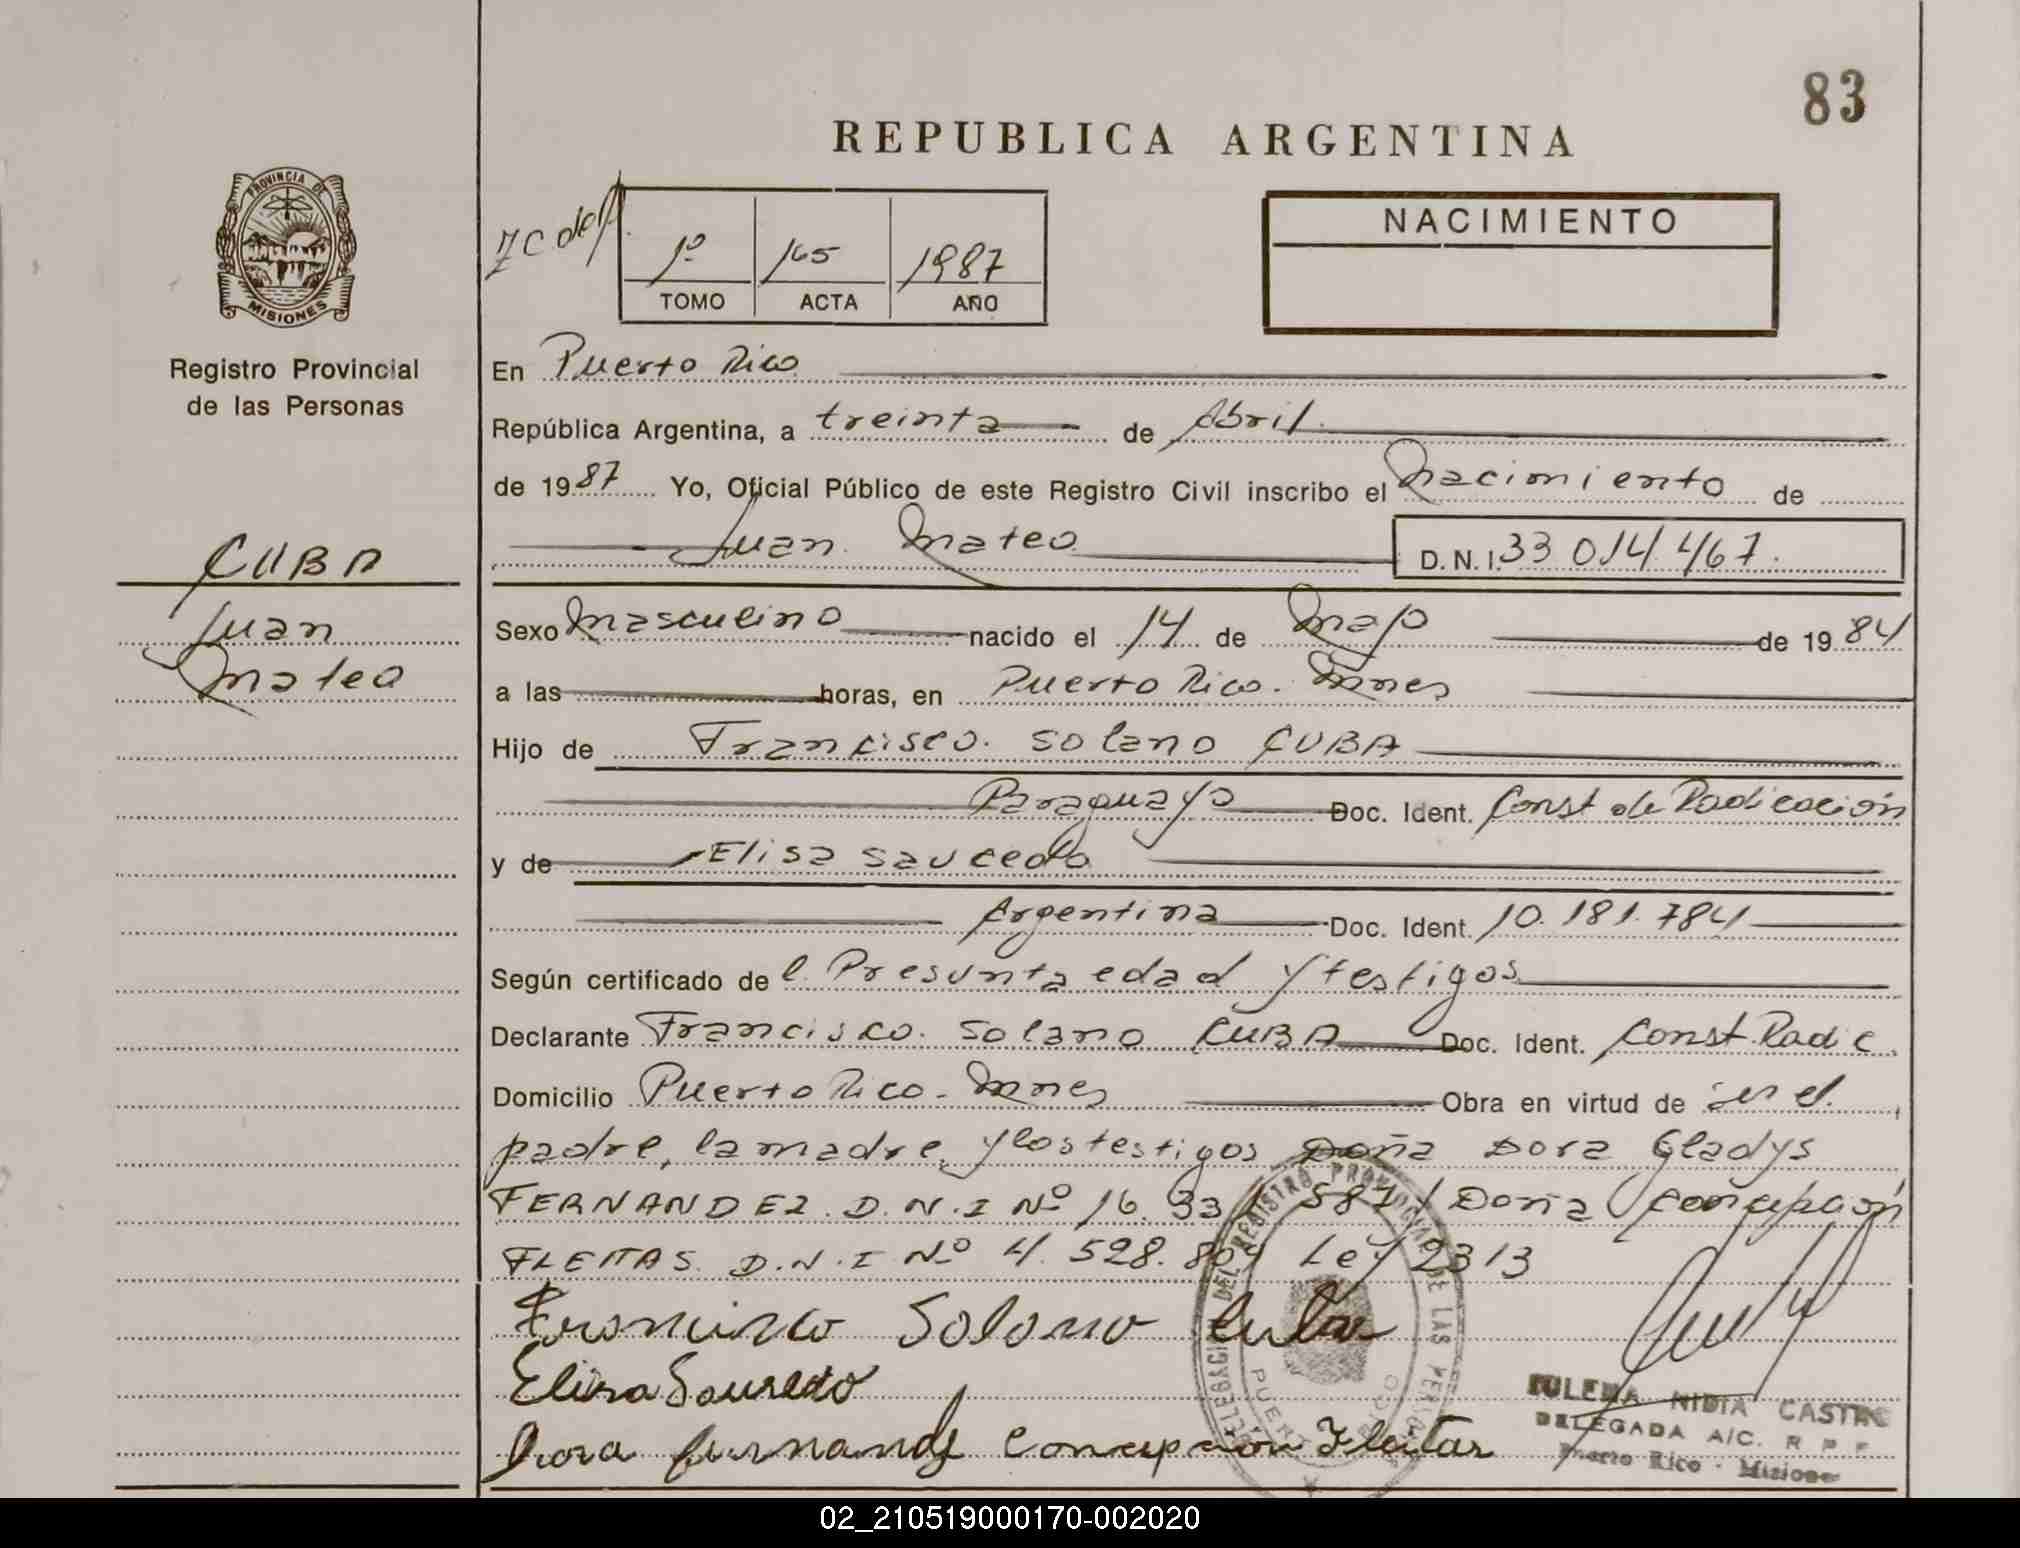 83
REPUBLICA ARGENTINA
PROVINCIA DE
MISIONES
Registro Provincial
de las Personas
1º 165 1987
TOMO ACTA AÑO
NACIMIENTO
En Puerto Rico
República Argentina, a treinta de Abril
de 1987 Yo, Oficial Público de este Registro Civil inscribo el Nacimiento de
Juan Mateo
D. N. I. 33 014.467.
CUBA
Juan
Mateo
Sexo Masculino nacido el 14 de Mayo de 1984
a las horas, en Puerto Rico. Mnes
Hijo de Francisco. Solano CUBA
Paraguayo Doc. Ident. Const de Radicación
y de Elisa Saucedo
Argentina Doc. Ident. 10.181.784
Según certificado de l. Presunta edad y testigos
Declarante Francisco. Solano CUBA Doc. Ident. Const. Radic.
Domicilio Puerto Rico - Mnes Obra en virtud de ser el
padre, la madre, y los testigos Doña Dora Gladys
FERNANDEZ. D.N.I Nº 16.331.587/ Doña Concepción
FLEITAS. D.N.I Nº 4.528.809 Ley 2313
Francisco Solano Cuba
Elisa Sausedo
Dora Fernandez Concepcion Fleitas
DELEGACION DEL REGISTRO PROVINCIAL DE LAS PERSONAS
PUERTO RICO
ZULEMA NIDIA CASTRO
DELEGADA A/C. R P P
Puerto Rico - Misiones
02_210519000170-002020